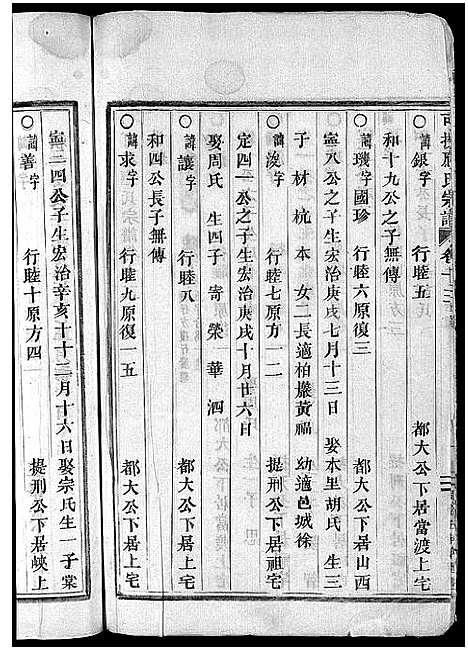 氏宗譜 卷十三
○諱銀字 行睦五 都大公下居當渡上宅
和十九公之子無傳
○諱璣字國珍 行睦六原復三 都大公下居山西
寧八公之子生宏治庚戌七月十三日 娶木里胡氏 生三
子 材 杭 本 女二長適柏巖黃福 幼適邑城徐
○諱浚字 行睦七原方一二 提刑公下居祖宅
定四一公之子生宏治庚戌十月廿六日
娶周氏 生四子 寄 榮 華 泗
○諱讓字 行睦八 都大公下居上宅
和四公長子無傳
○諱求字 行睦九原復一五 都大公下居上宅
寧二四公子生宏治辛亥十二月十六日娶宗氏生一子棠
○諱善字 行睦十原方四 提刑公下居峽上